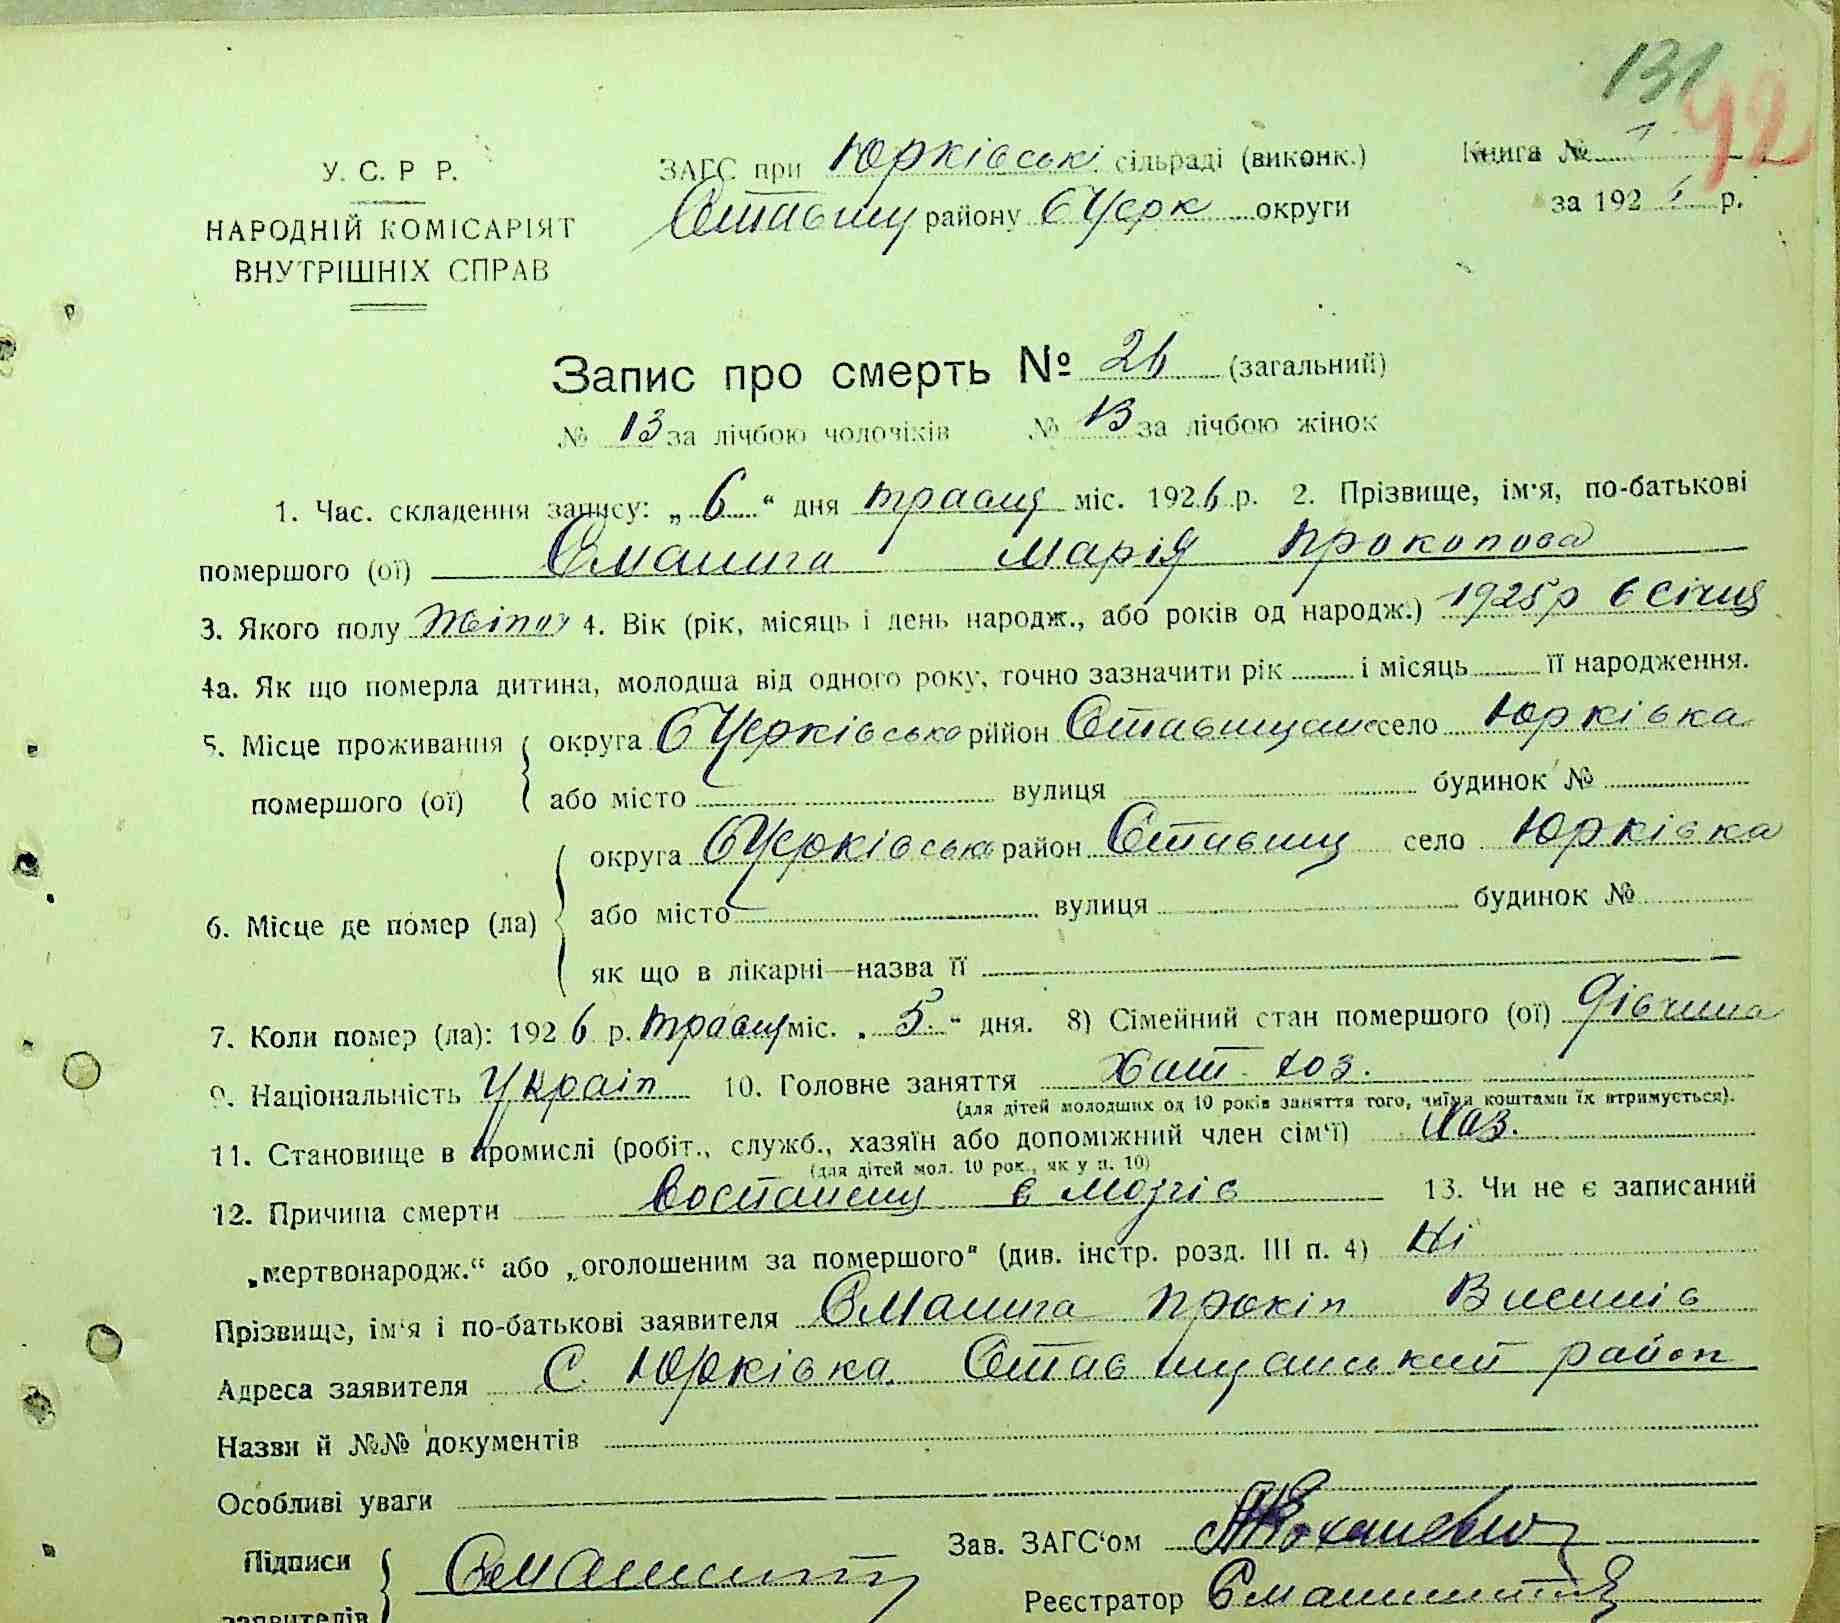 131
42
У. С. Р Р.
НАРОДНІЙ КОМІСАРІЯТ
ВНУТРІШНІХ СПРАВ
ЗАГС при Юрківські сільраді (виконк.)
Ставищ району БЦерк округи
Книга № 1
за 1926 р.
Запис про смерть № 26 (загальний)
№ 13 за лічбою чоловіків № 13 за лічбою жінок
1. Час. складення запису: „6“ дня травця міс. 1926 р. 2. Прізвище, ім'я, по-батькові
помершого (ої) Смалига Марія Прокопова
3. Якого полу 4. Вік (рік, місяць і день народж., або років од народж.) 1925 р 6 січця
4а. Як що померла дитина, молодша від одного року, точно зазначити рік і місяць її народження.
5. Місце проживання
помершого (ої)
округа БЦерківська район село Юрківка
або місто вулиця будинок №
6. Місце де помер (ла)
округа БЦерківська район Ставищ село Юрківка
або місто вулиця будинок №
як що в лікарні—назва її
7. Коли помер (ла): 1926 р. травця міс. „5“ дня. 8) Сімейний стан помершого (ої) дівчина
9. Національність Україн 10. Головне заняття Хат хоз.
(для дітей молодших од 10 років заняття того, чиїми коштами їх втримується).
11. Становище в промислі (робіт., служб., хазяїн або допоміжний член сім'ї) Хаз.
(для дітей мол. 10 рок., як у п. 10)
12. Причина смерти в мозгів 13. Чи не є записаний
„мертвонародж.“ або „оголошеним за помершого“ (див. інстр. розд. III п. 4) Ні
Прізвище, ім'я і по-батькові заявителя Смалига Прокіп
Адреса заявителя С. Юрківка Ставищанський район
Назви й №№ документів
Особливі уваги
Підписи
заявителів
Зав. ЗАГС'ом
Реєстратор